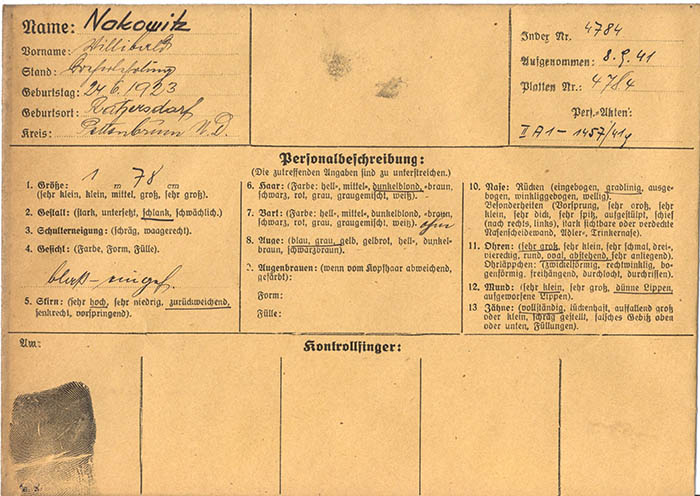 Name: Nakowitz
Vorname: Willibald
Stand:
Geburtstag: 24.6.1923
Geburtsort: Ratzersdorf
Kreis: N. D.
Index Nr. 4784
Aufgenommen: 8.9.41
Platten Nr.: 4784
Pers.-Akten:
II A1 – 1457/41g
Personalbeschreibung:
(Die zutreffenden Angaben sind zu unterstreichen).
1. Größe: 1 m 78 cm
(sehr klein, klein, mittel, groß, sehr groß).
2. Gestalt: (stark, untersetzt, schlank, schwächlich).
3. Schulterneigung: (schräg, waagerecht).
4. Gesicht: (Farbe, Form, Fülle).
blaß – eingef
5. Stirn: (sehr hoch, sehr niedrig, zurückweichend,
senkrecht, vorspringend).
6. Haar: (Farbe: hell-, mittel-, dunkelblond, -braun,
schwarz, rot, grau, graugemischt, weiß).
7. Bart: (Farbe: hell-, mittel-, dunkelblond, -braun,
schwarz, rot, grau, graugemischt, weiß). ohne
8. Auge: (blau, grau, gelb, gelbrot, hell-, dunkel-
braun, schwarzbraun).
9. Augenbrauen: (wenn vom Kopfhaar abweichend,
gefärbt):
Form:
Fülle:
10. Nase: Rücken (eingebogen, gradlinig, ausge-
bogen, winkliggebogen, wellig).
Besonderheiten (Vorsprung, sehr groß, sehr
klein, sehr dick, sehr spitz, aufgestülpt, schief
(nach rechts, links), stark sichtbare oder verdeckte
Nasenscheidewand, Adler-, Trinkernase).
11. Ohren: (sehr groß, sehr klein, sehr schmal, drei-,
viereckig, rund, oval, abstehend, sehr anliegend).
Ohrläppchen: (zwickelförmig, rechtwinklig, bo-
genförmig, freihängend, durchlocht, durchrissen).
12. Mund: (sehr klein, sehr groß, dünne Lippen,
aufgeworfene Lippen).
13 Zähne: (vollständig, lückenhaft, auffallend groß
oder klein, schräg gestellt, falsches Gebiß oben
oder unten, Füllungen).
Am:
Kontrollfinger: